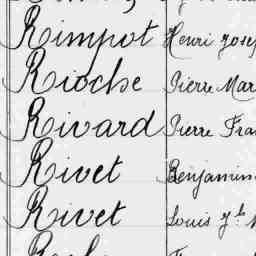 Rimpot Henri Josep
Rioche Pierre Mar
Rivard Pierre Fran
Rivet Benjamin
Rivet Louis